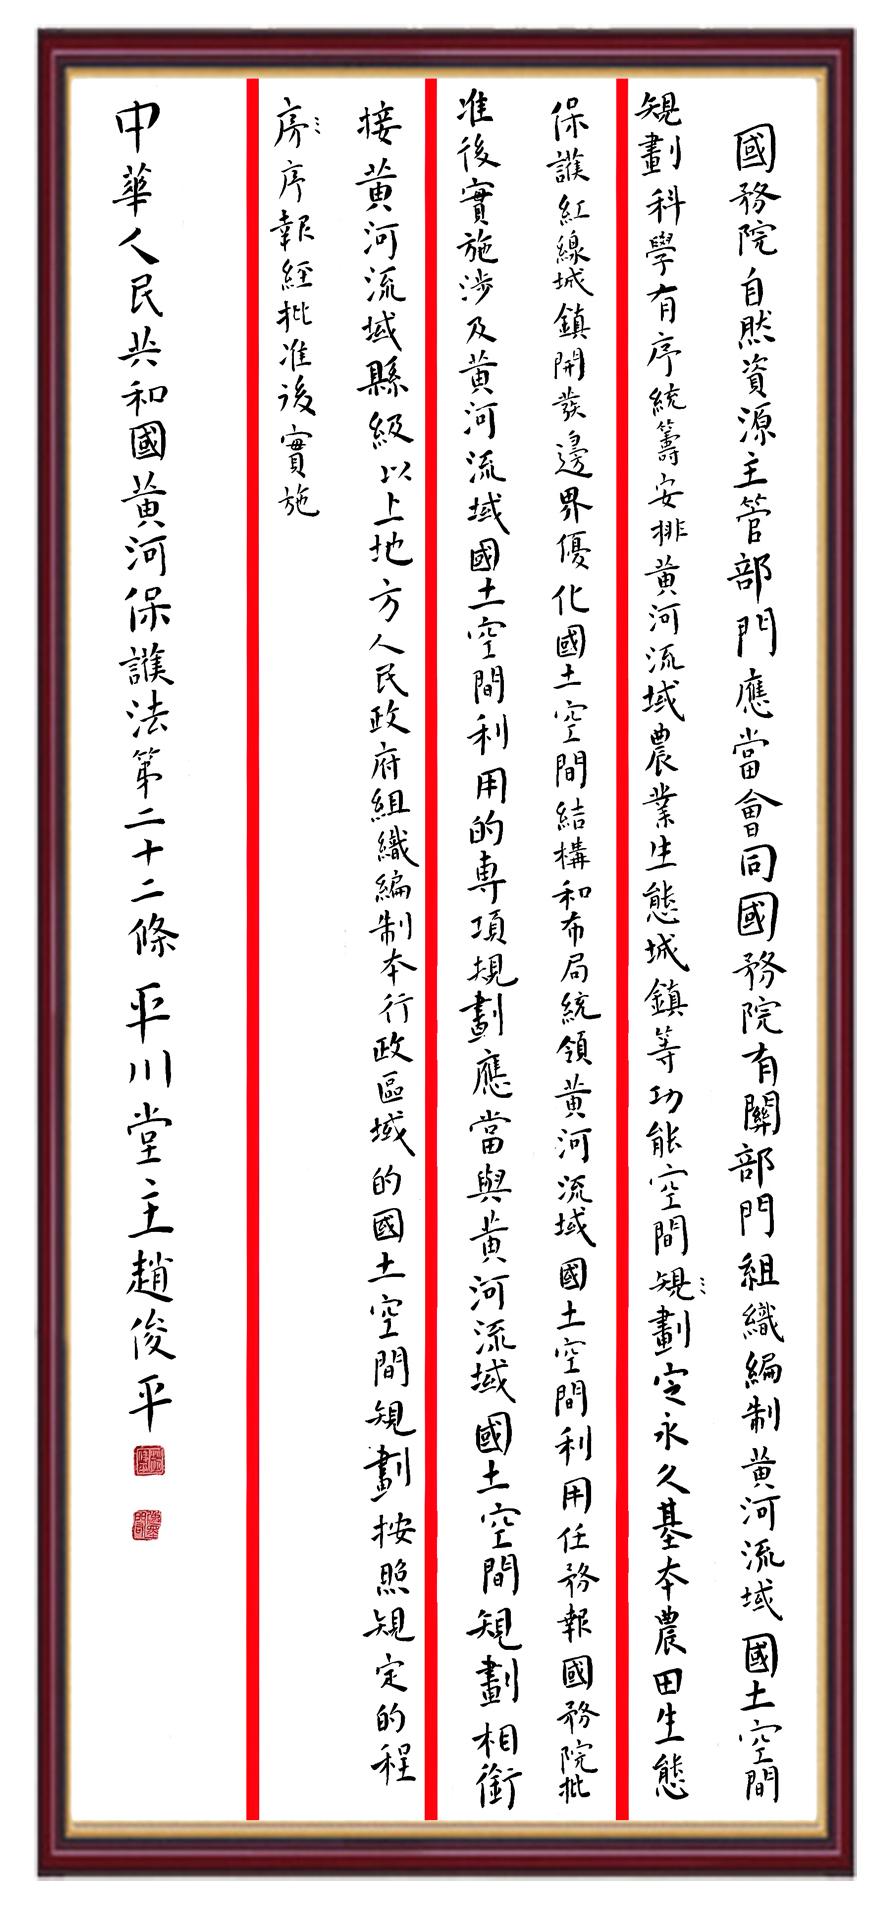 國務院自然資源主管部門應當會同國務院有關部門組織編制黄河流域國土空間
規劃科學有序統籌安排黄河流域農業生態城鎮等功能空間規劃定永久基本農田生態
保護紅線城鎮開發邊界優化國土空間結構和布局統領黄河流域國土空間利用任務報國務院批
准後實施涉及黄河流域國土空間利用的專項規劃應當與黄河流域國土空間規劃相銜
接黄河流域縣級以上地方人民政府組織編制本行政區域的國土空間規劃按照規定的程
序報經批准後實施
中華人民共和國黄河保護法第二十二條平川堂主趙俊平